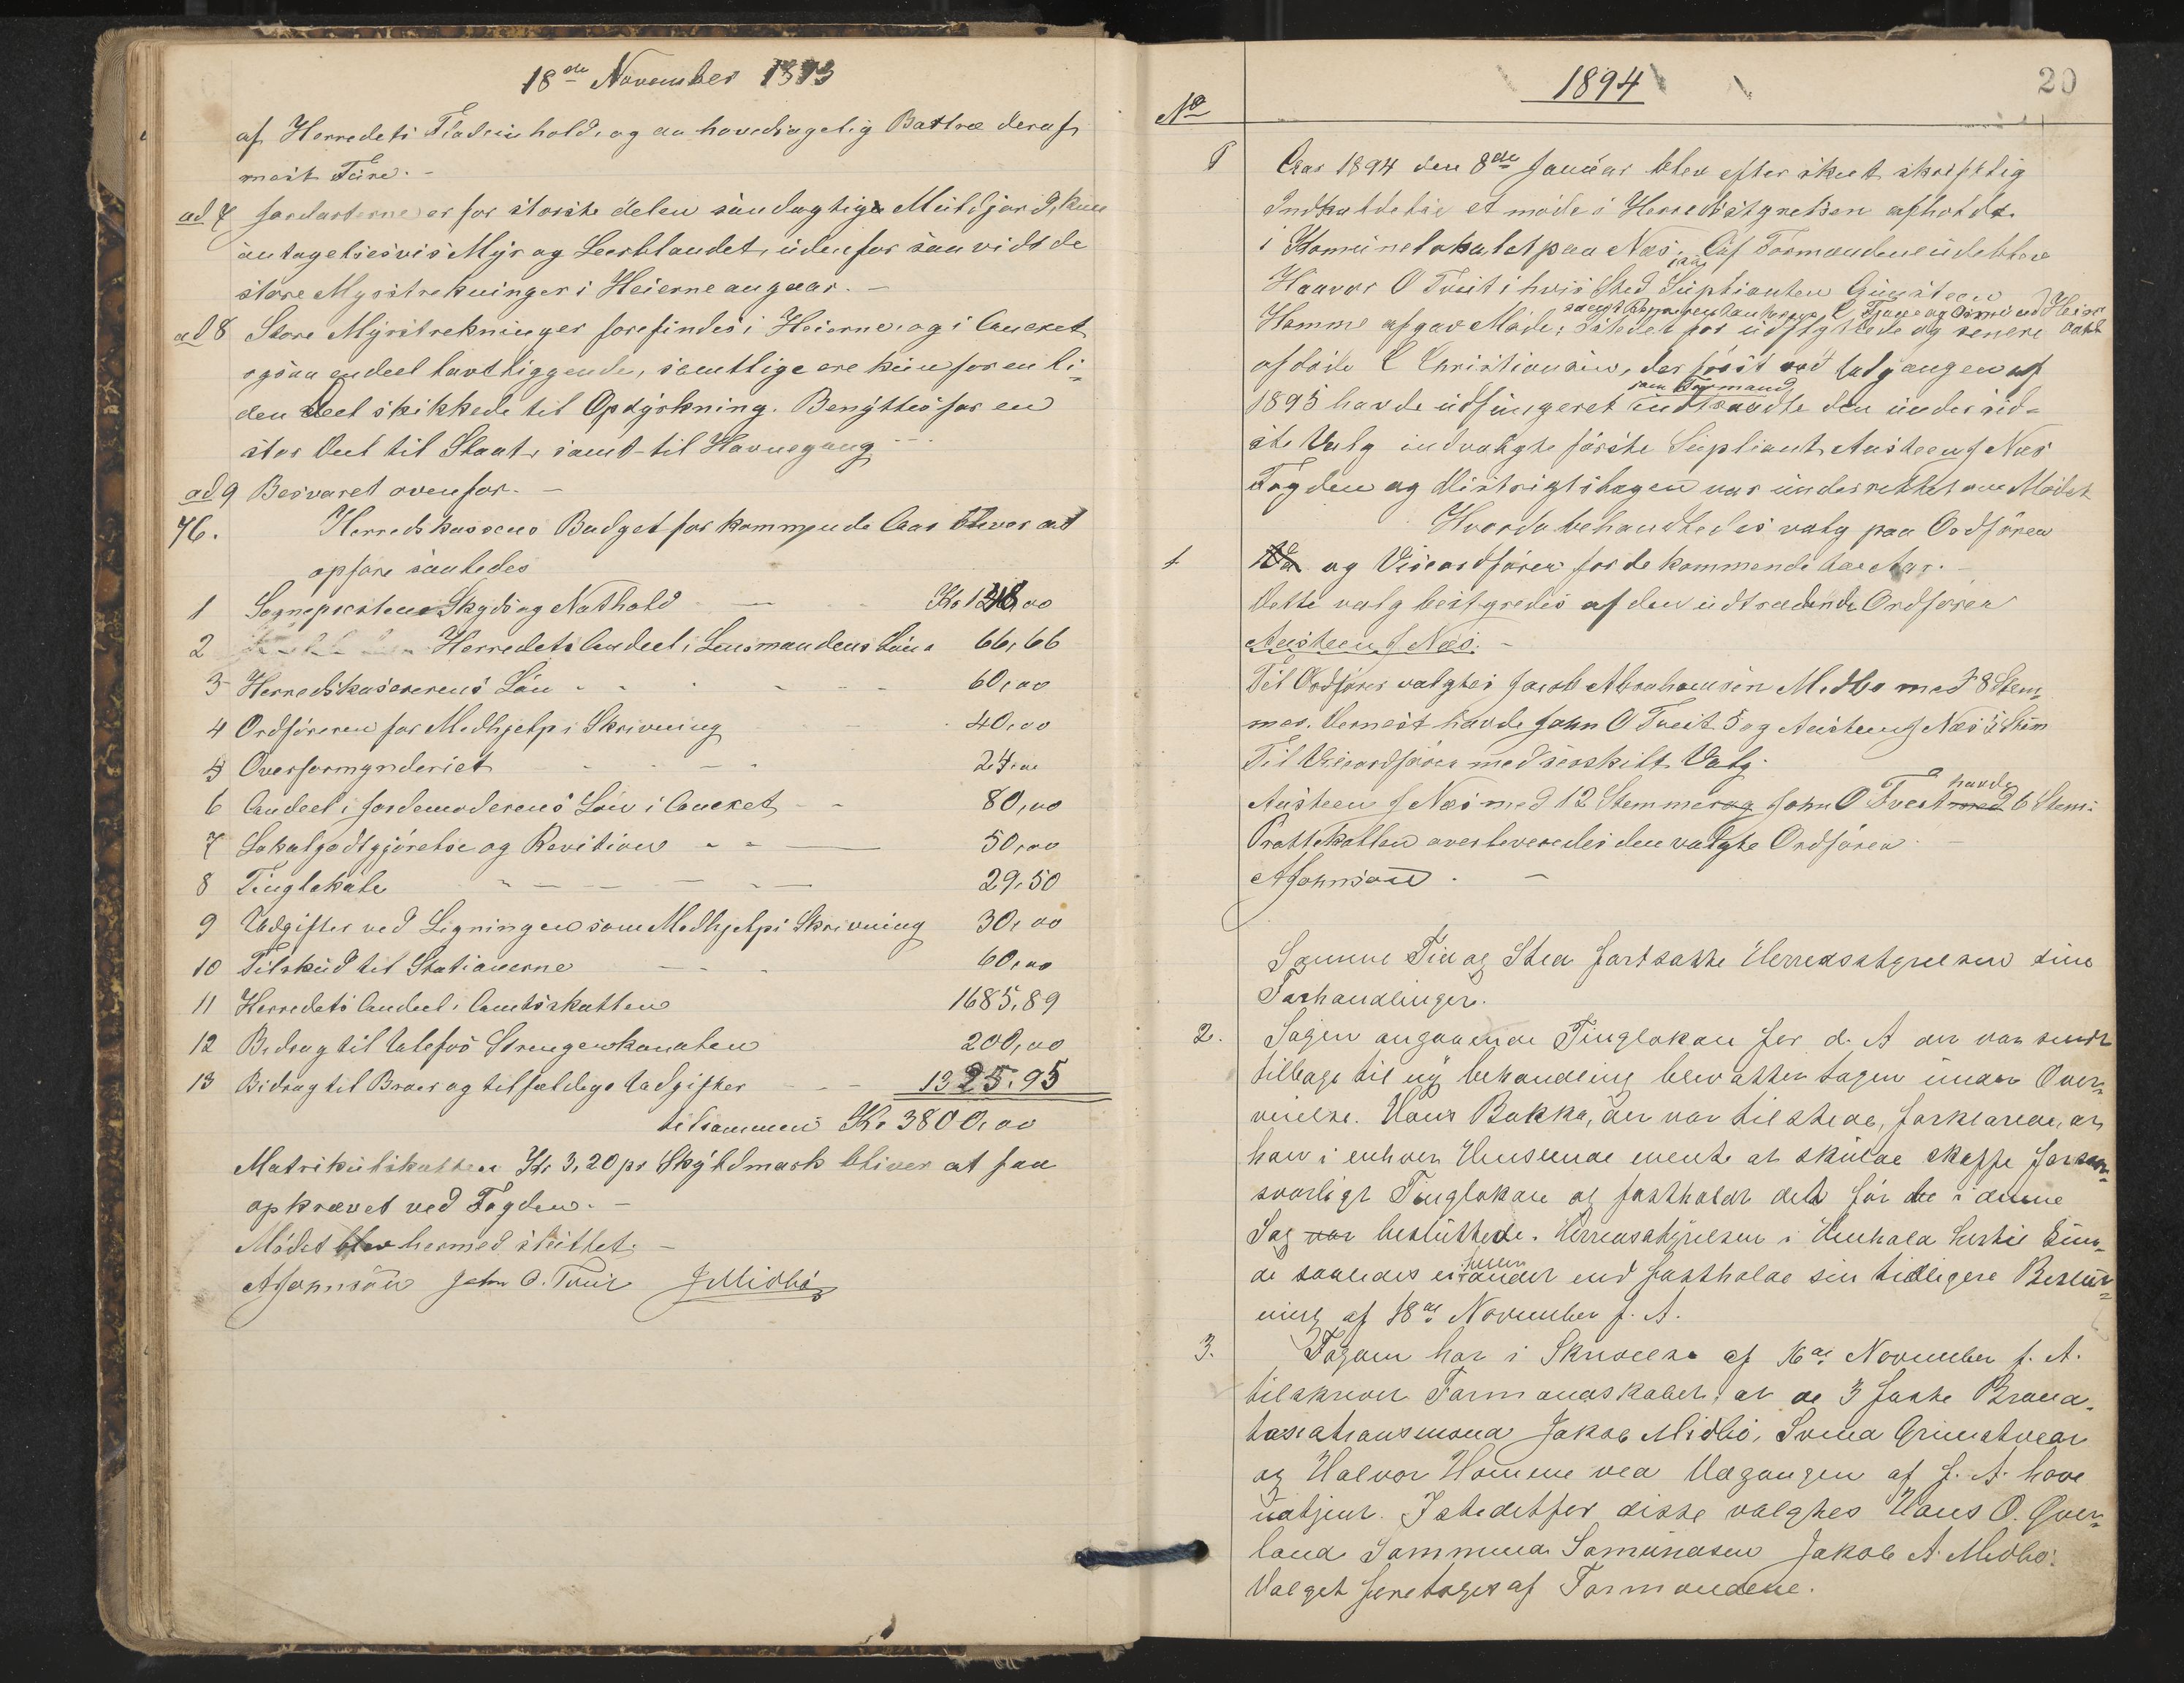 18de November 1893
af Herredets Fladeinhold, og en hovedsagelig Bartræ deraf
mest Füre. -
ad 7 Jordarterne er for störste delen sandagtige Müldjord, kun
üntagelsesvis Myr og Leerblandet, üdenfor saavidt de
store Myrstrekninger i Heierne angaar. -
ad 8 Store Myrstrekninger forefindes i Heierne, og i Anexet
ogsaa endeel lavtliggende, samtlige ere kün for en li-
den Deel skikkede til Opdyrkning. Benyttes for en
stor Deel til Slaat, samt til Havnegang
ad 9 Besvaret ovenfor. -
76. Herredskassens Budget for kommende Aar bliver at
opføre saaledes
1 Sognepresten Skyds og Nathold Kr 148,00
2 Herredets Andeel i Lensmandens Lön 66,66
3 Herredskasererens Lön 60,00
4 Ordföreren for Medhjelp i Skrivning 40,00
5 Overformynderiet 24,00
6 Andeel i Jordemoderens Lön i Anexet 80,00
7 Lokalgodtgjörelse og Revition 50,00
8 Tinglokale 29,50
9 Udgifter ved Ligningen som Medhjelp i Skrivning 30,00
10 Tilskud til Stationerne 60,00
11 Herredets Andeel i Amtsskatten 1685,89
12 Bidrag til Ulefos Strengenkanalen 200,00
13 Bidrag til Broer og tilfældige Udgifter 1325,95
tilsammen Kr 3800,00
Matrikulskatten Kr 3,20 pr Skyldmark bliver at faa
opkrævet ved Fogden. -
Mödet blev hermed slüttet. -
AJohnson John O. Tveit JMidbö
1894 20
No
Aar 1894 den 8de Januar blev efter skeet skriftlig
Indkaldelse et möde i Herredsstyrelsen afholdt
i Komünelokalet paa Næs. Af Formændene üdeblev
Haavor O Tveit i hvis Sted Süplianten Günsteen
samt Representanterne
Homme afgav Möde; istedet for üdflyttede og senere
afdöde C Christiansen, der först ved Udgangen af
som Formand
1895 havde üdfüngeret indtraadte den ünder sid-
ste Valg indvalgte förste Süpliant Austeen J Næs
Fogden og Distriktslægen var ünderrettet om Mödet
Hvorda behandledes valg paa Ordförer
1 og Viseordförer for de kommende Aar. -
Dette valg bestyredes af den üdtrædende Ordförer
Austeen J Næs. -
Til Ordförer valgtes Jacob Abrahamsen Midbo med 8 Stem-
mer. Dernest havde John O Tveit 5 og Austeen J Næs 5 Stem
Til Viceordförer med særskilt Valg.
havde
Austeen J Næs med 12 Stemmer og John O Tveit med 6 Stem:
Protokollen overleveredes den valgte Ordförer. -
AJohnson. -
Samme Tid og Sted fortsatte Herredsstyrelsen sine
Forhandlinger.
2. Sagen angaaende Tinglokale for d. A der var sendt
tilbage til ny behandling blev atter tagen ünder Over-
veielse. Hans Bakka, der var tilstede, forklarede, at
han i enhver Henseende mente at skülde skaffe forsvar-
svarligt Tinglokale og fastholdt det för de i denne
Sag var beslüttede. Herredsstyrelsen i Henhold hertil kün-
heller
de saaledes ei andet end fastholde sin tidligere Beslut-
ning af 18de November f. A.
3. Fogden har i Skrivelse af 16de November f. A.
tilskrevet Formandskabet, at de 3 faste Brand-
taxationsmænd Jakob Midbö, Svend Grimstvedt
og Halvor Homme ved Udgangen af f. A. have
üdtjent. Istedetfor disse valgtes Hans O. Over-
land Sammund Samündsen Jakob A. Midbö.
Valget foretoges af Formændene.